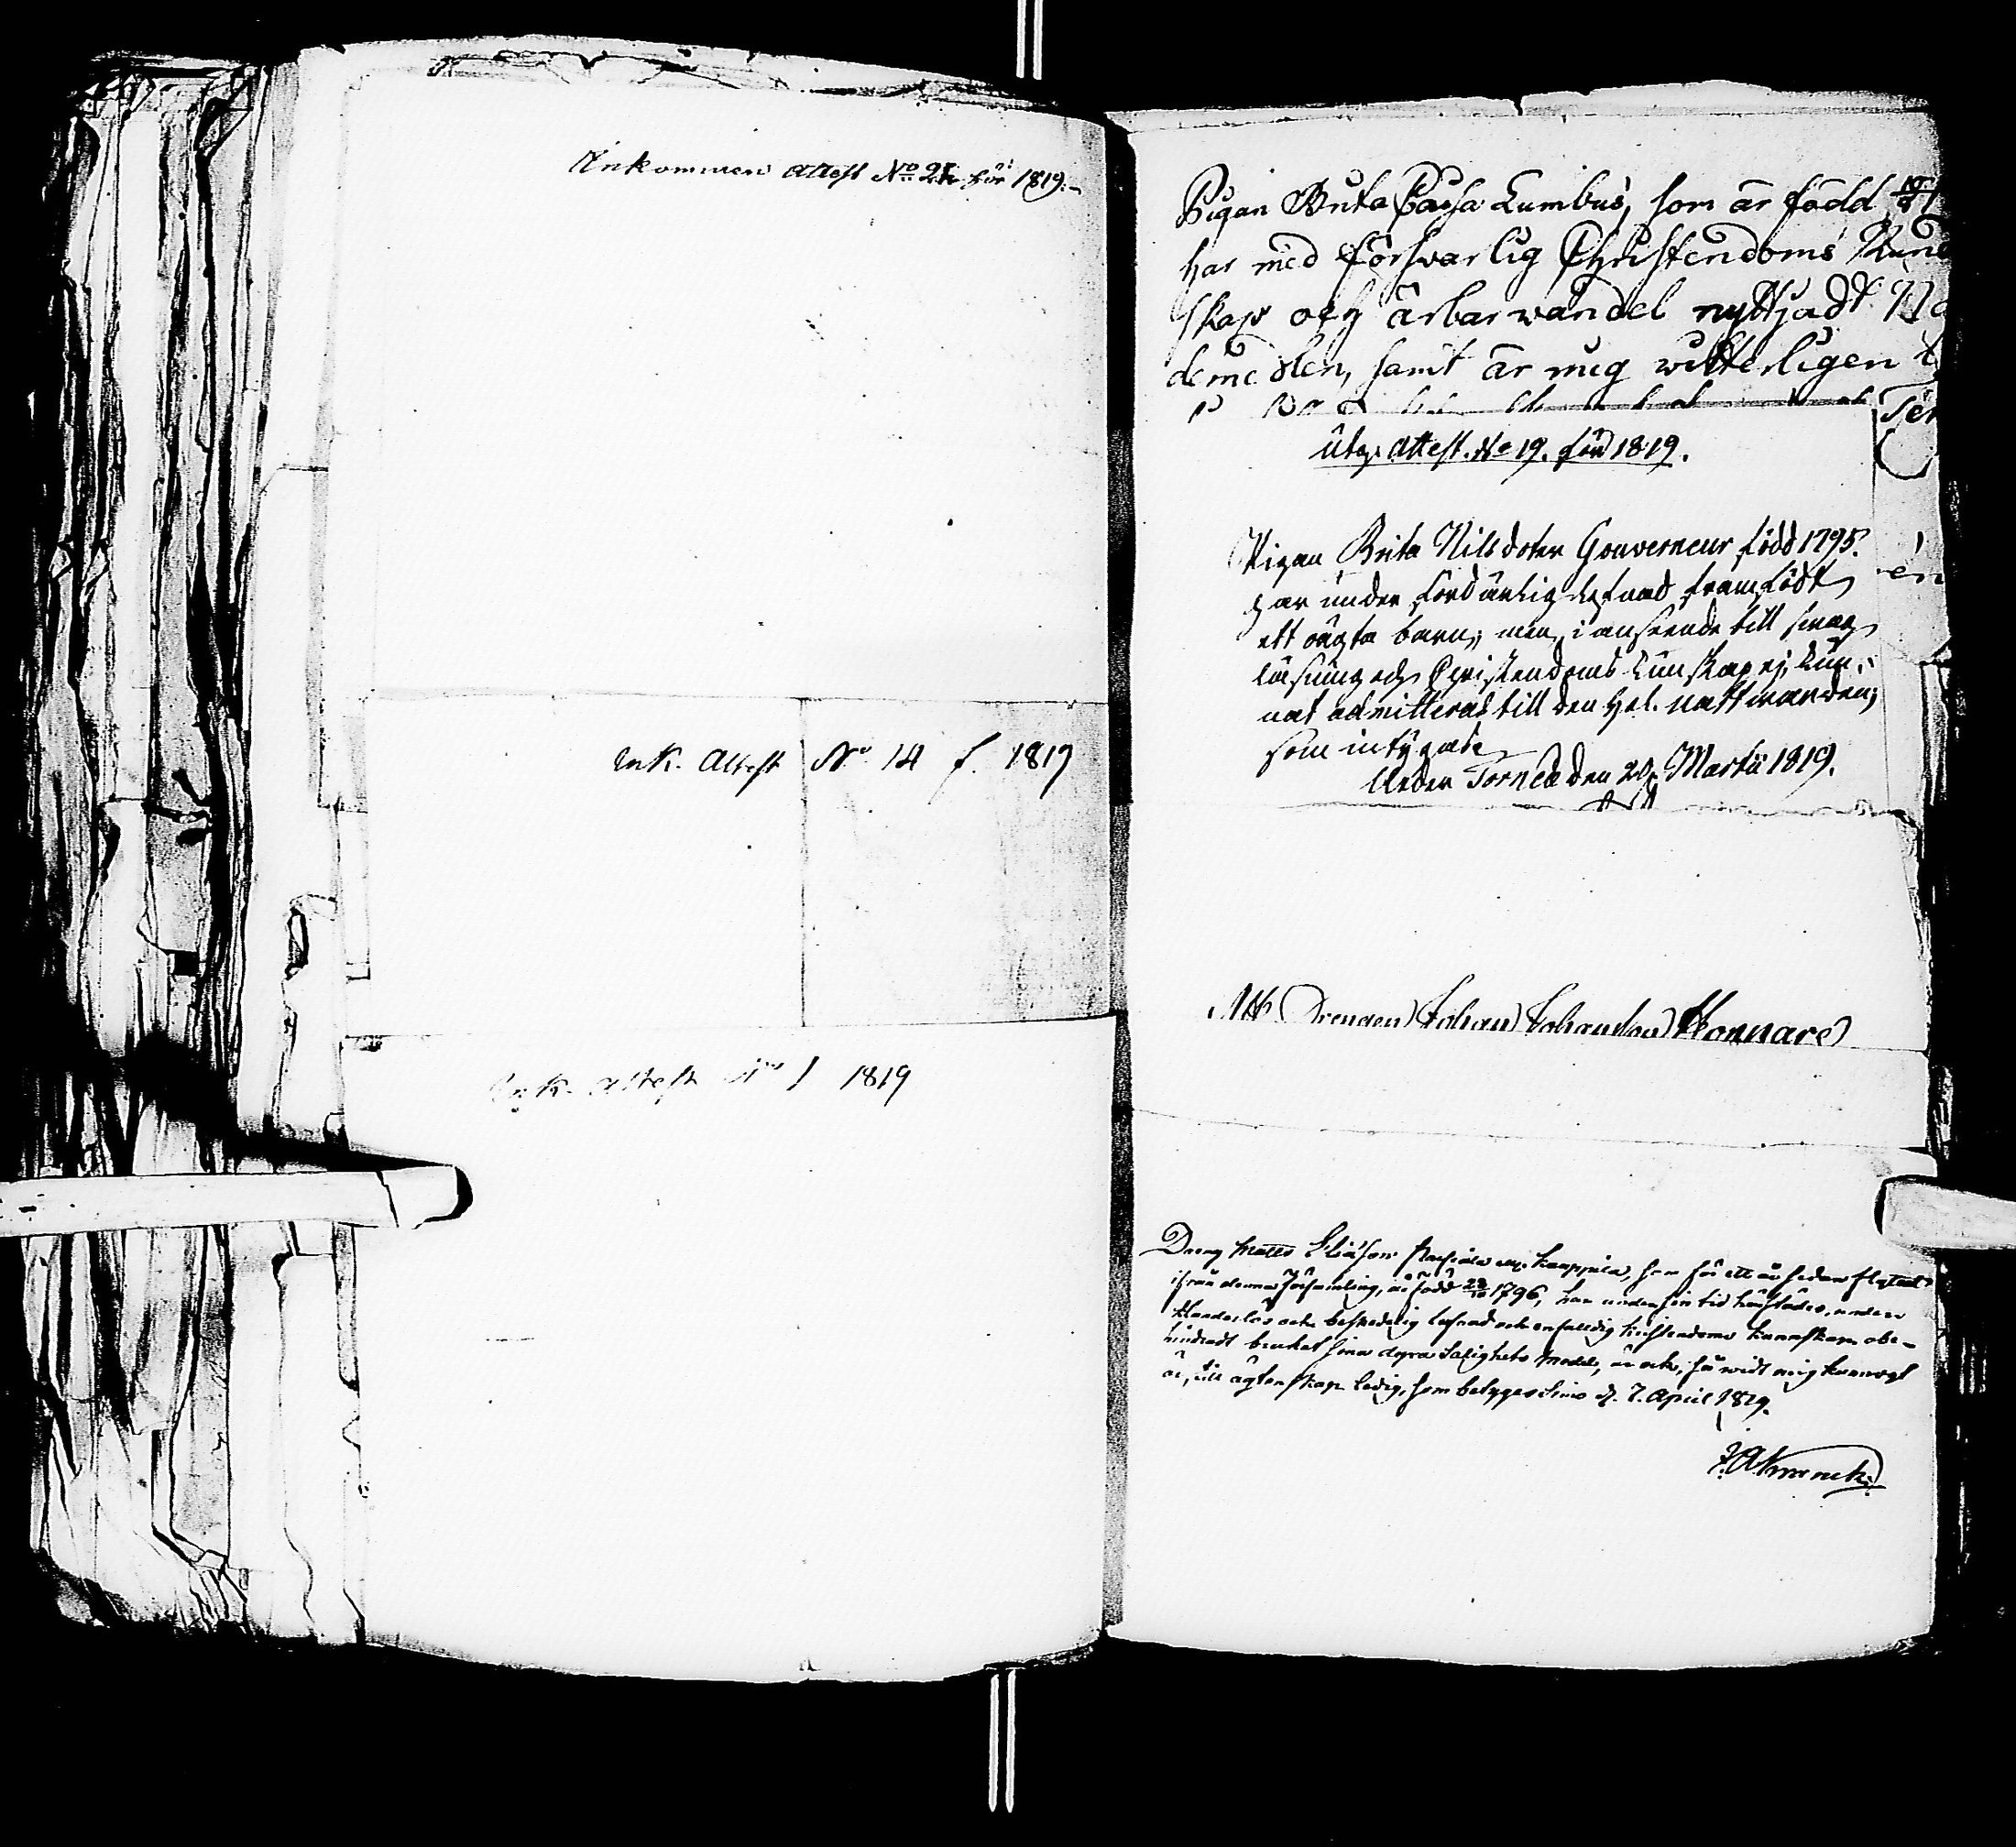 Inkommen attest No 21 för 1819.
Ink. Attest No 14 f. 1819
Ink. attest No 1 1819
Pigan Brita Caisa Lumbus, som är född 10/
har med försvarlig Christendoms Kund
skap och ärbar wandel nyttjadt Na
demedlen, samt är mig witterligen
Utg. Attest. No 19. för 1819.
Pigan Brita Nilsdoter Gouverneur född 1795.
har under lefnad framfödt
ett oägta barn; men i anseende till swag
läsning och Christendoms kunskap ej kun-
nat admitteras till den Hel. nattwarden;
som intygade
Neder Torneå den 20 Martii 1819.
Att Drengen Johan Johansson Honnare
Dreng Matts Eliasson Kauppila, som för ett år sedan flytat
ifrån denna Församling, är född 1796, har under sin tid härstädes, under
klanderlös och beskedelig lefnad och enfaldig Christendoms kunnskap obe-
hindradt brukat sina dyra Salighets Medel, är ock, så widt mig kunnogt
är, till ägtenskap ledig, som betyges Simo d. 7. April 1819.